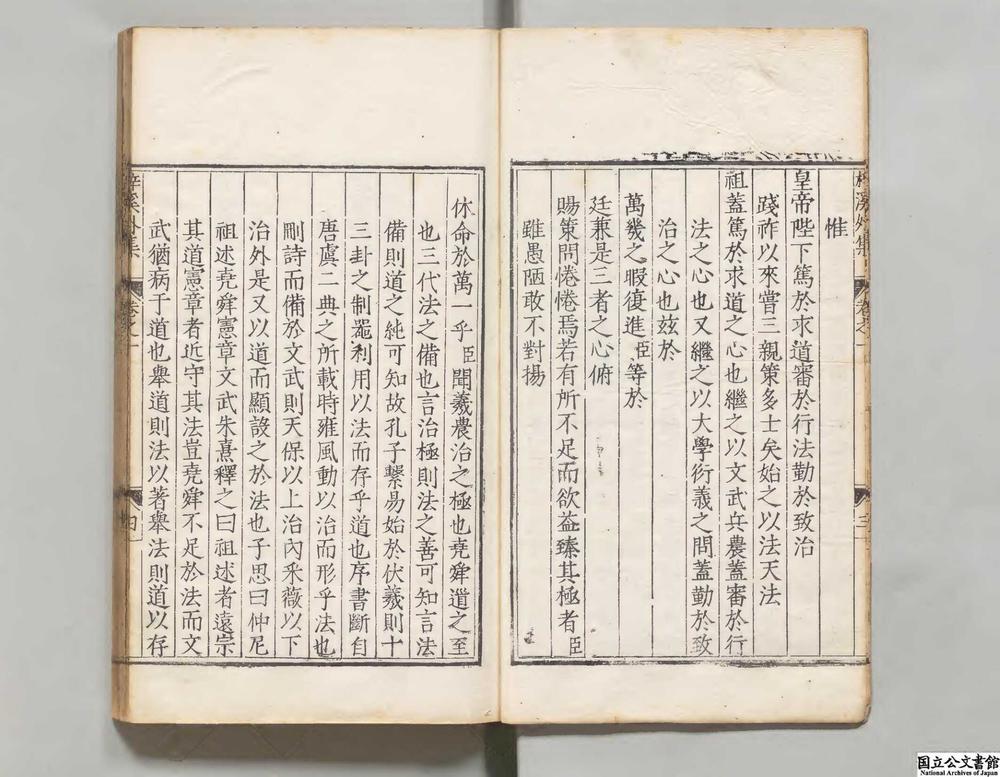 惟
皇帝陛下篤於求道審於行法勤於致治
踐祚以來嘗三親策多士矣始之以法天法
祖蓋篤於求道之心也繼之以文武兵農蓋審於行
法之心也又繼之以大學衍義之問蓋勤於致
治之心也玆於
萬幾之暇復進臣等於
廷兼是三者之心俯
賜策問惓惓焉若有所不足而欲益臻其極者臣
雖愚陋敢不對揚
休命於萬一乎臣聞羲農治之極也堯舜道之至
也三代法之備也言治極則法之善可知言法
備則道之純可知故孔子繫易始於伏羲則十
三卦之制噐利用以法而存乎道也序書斷自
唐虞二典之所載時雍風動以治而形乎法也
刪詩而備於文武則天保以上治內采薇以下
治外是又以道而顯設之於法也子思曰仲尼
祖述堯舜憲章文武朱熹釋之曰祖述者遠宗
其道憲章者近守其法豈堯舜不足於法而文
武猶病于道也舉道則法以著舉法則道以存
溪外集
卷之一
三
溪外集
卷之一
四
国立公文書館
National Archives of Japan